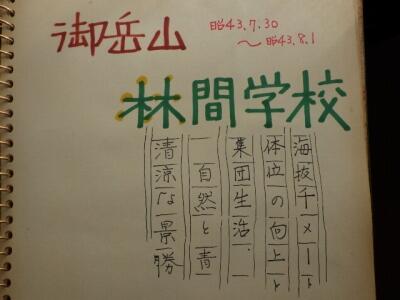 御岳山
昭43.7.30
～昭43.8.1
林間学校
海抜千メート
体位の向上と
集団生活、
一自然と青
清涼な景勝